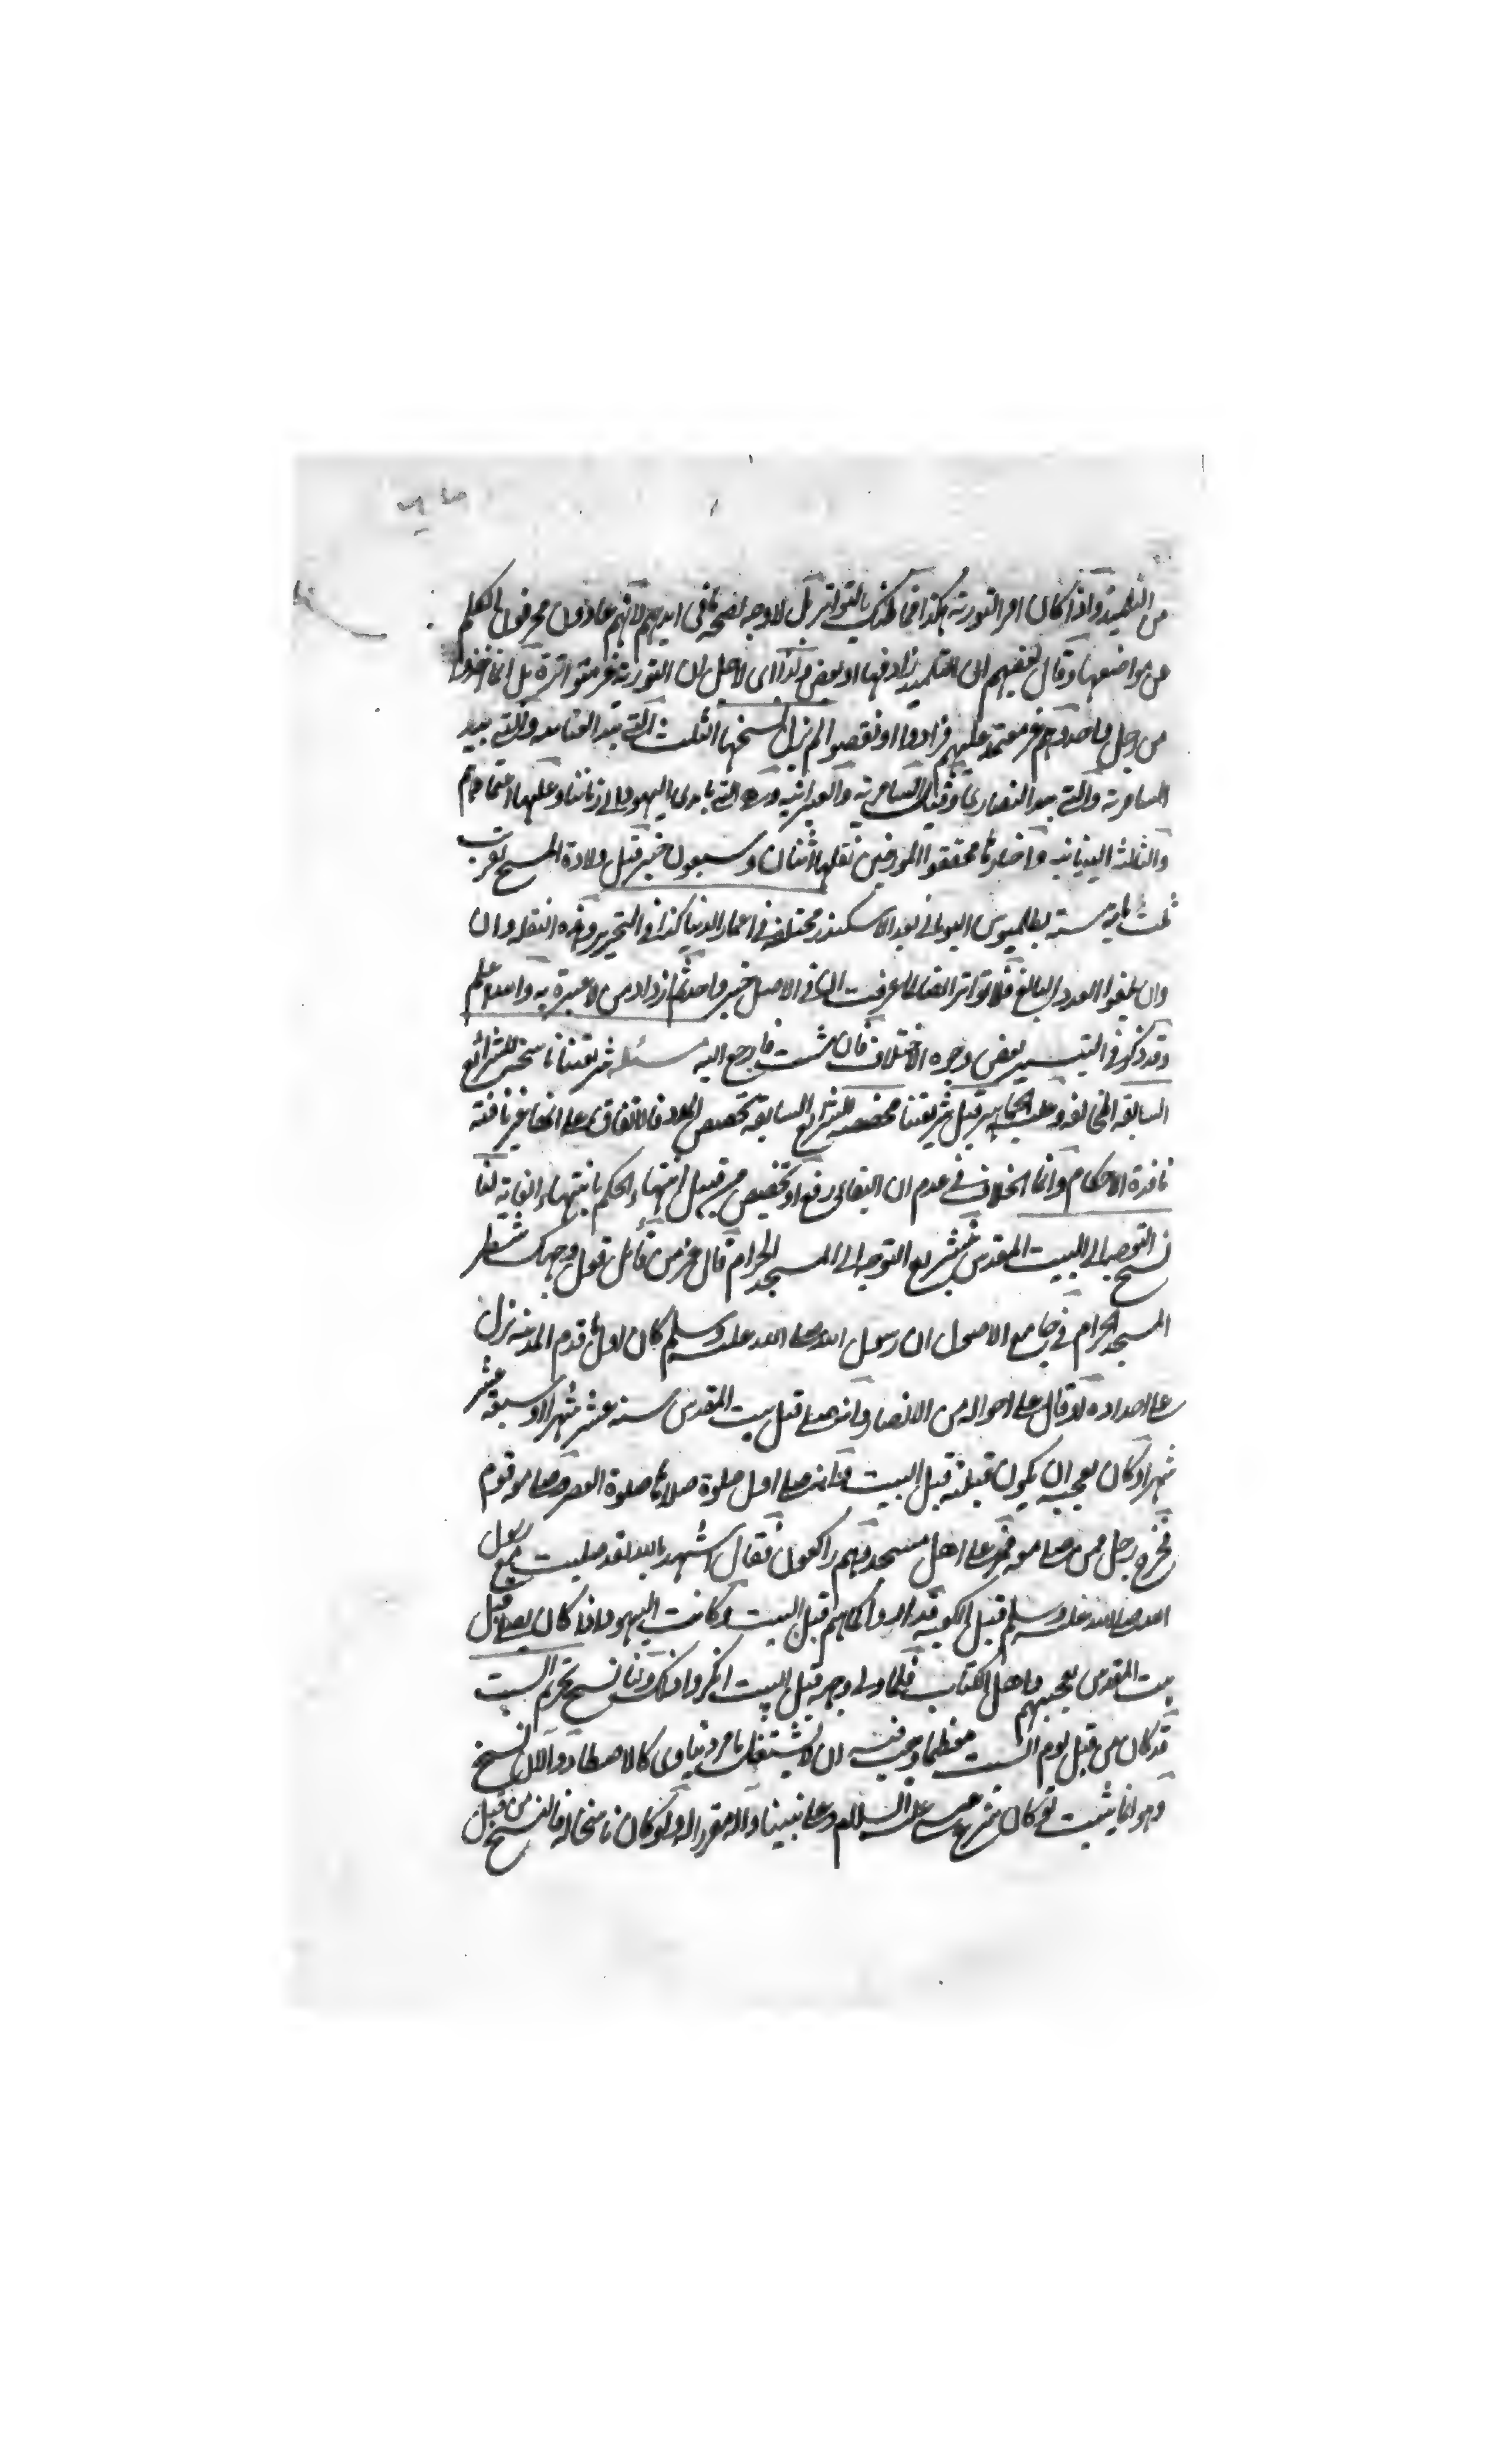 من التلميذ واذا كان امر التورية هكذا فما ظنك بالتواتر بل لا وجه لصحة ما في ايديهم لانهم عادون محرفون الكلم
عن مواضعها وقال بعضهم ان التلميذ زاد فيها او بعض ولذا اى لاجل ان التورية غير متواترة بل انما اخذوا
من رجل واحد وهم غير معتمد عليهم فزادوا او نقصوا لم نزل نسخها الثلث التى بيد العنانية والتى بيد
السامرية والتى بيد النصارى وقيل السامرية والعبرانية وهى التى بايدى اليهود الى زماننا وعليها اعتمادهم
والثالثة اليونانية واختارها محققوا المورخين نقلها اثنان وسبعون حبر قبل ولادة المسيح بقريب
ثلث مائة سنة لبطلميوس اليونانى بعد الاسكندر مختلفة فى اعمار الدنيا كذا فى التحرير وهذه النقلة وان
وان بلغوا العدد البالغ فلا تواتر ايضا لما عرفت ان فى الاصل خبر واحد ثم ازداد من لا عبرة به والله اعلم
وقد ذكر فى التيسير بعض وجوه الاختلاف فان شئت فارجع اليه مسئلة شريعتنا ناسخة للشرائع
السابقة المخالفة وعليه الجماهير قيل شريعتنا مخصصة للشرائع السابقة تخصيص العدد فالاتفاق على انها غير نافذة
نافذة الاحكام وانما الخلاف فى عدم ان البقاء رفع او تخصيص من قبيل انتهاء الحكم بانتهاء الغاية لنا
نسخ التوجه الى البيت المقدس بتشريع التوجه الى المسجد الحرام قال عز من قائل فول وجهك شطر
المسجد الحرام فى جامع الاصول ان رسول الله صلى الله عليه وسلم كان اول ما قدم المدينة نزل
على اجداده او قال على اخواله من الانصار وانه صلى قبل بيت المقدس ستة عشر شهرا او سبعة عشر
شهرا وكان يعجبه ان يكون قبلته قبل البيت وانه صلى اول صلوة صلاها صلوة العصر وصلى معه قوم
فخرج رجل ممن صلى معه فمر على اهل مسجد وهم راكعون فقال اشهد بالله لقد صليت مع رسول
الله صلى الله عليه وسلم قبل الكعبة فداروا كما هم قبل البيت وكانت اليهود اذا كان يصلى قبل
بيت المقدس يعجبهم واهل الكتاب فلما ولى وجهه قبل البيت انكروا ذلك ولنا نسخ تحريم السبت
قد كان من قبل يوم السبت معظما وجب فيه ان لا يشتغل بامر دنياوى كالاصطياد والان نسخ
وهو انما يثبت لو كان شرع عيسى عليه السلام وعلى نبينا واله مقررا له ولو كان ناسخا له فالنسخ من قبل